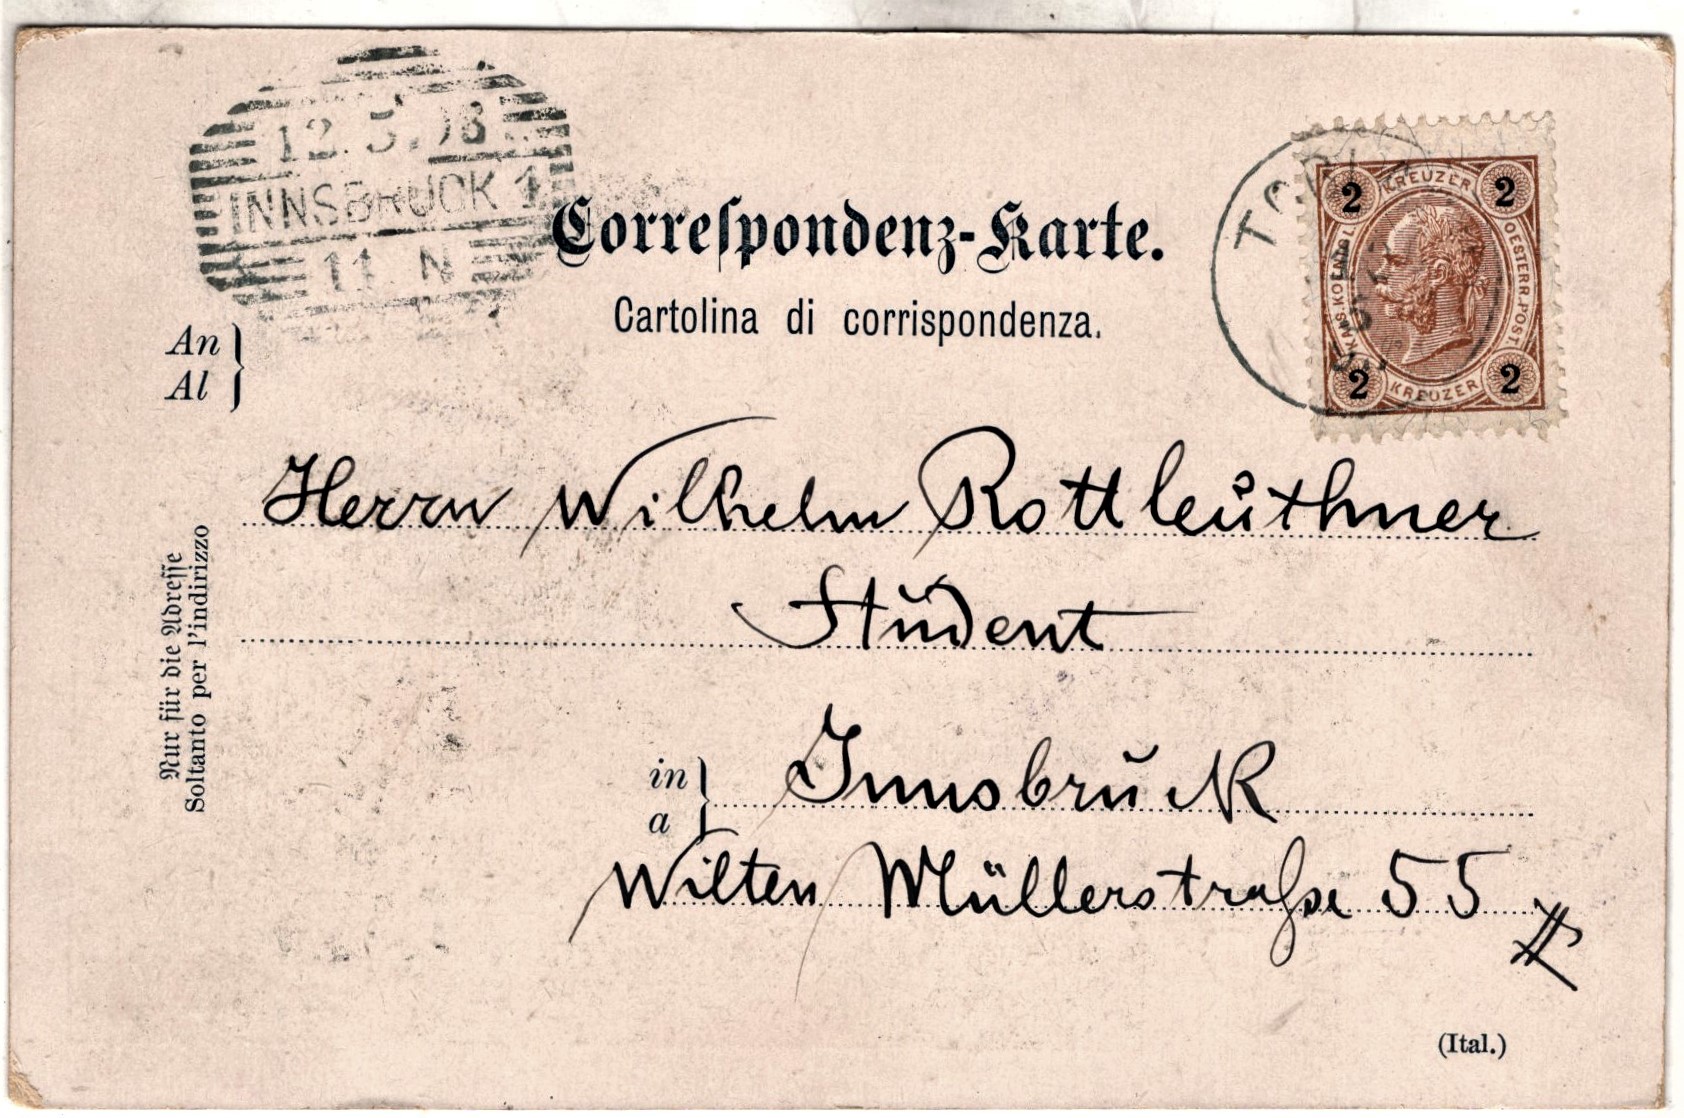 12.5.98
INNSBRUCK 1
11. N
Correſpondenz-Karte.
Cartolina di corrispondenza.
An
Al
2 KREUZER 2
KAIS. KOENIGL. OESTERR. POST.
2 KREUZER 2
Herrn Wilhelm Rottleuthner
Student
in
a
Innsbruck
Wilten Müllerstraße 55
II
Nur für die Adreſſe
Soltanto per l'indirizzo
(Ital.)